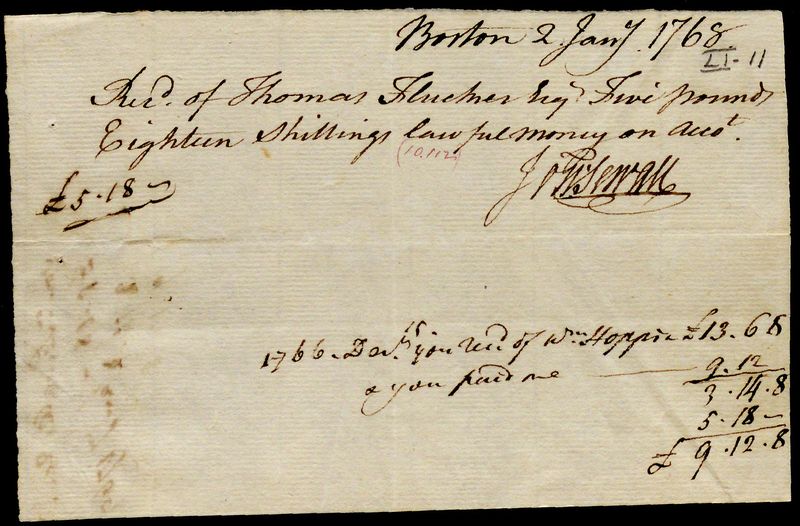 Boston 2 Jany. 1768
LI-11
Recd. of Thomas Flucker Esqr Five pounds
Eighteen Shillings lawful money on Acct.
(10.112)
£5.18 —
Jos Sewall
1766. Decr. 15 you recd of Wm Hoppin £13.6 8
& you paid me — 9.12
3.14.8
5.18 —
£ 9.12.8